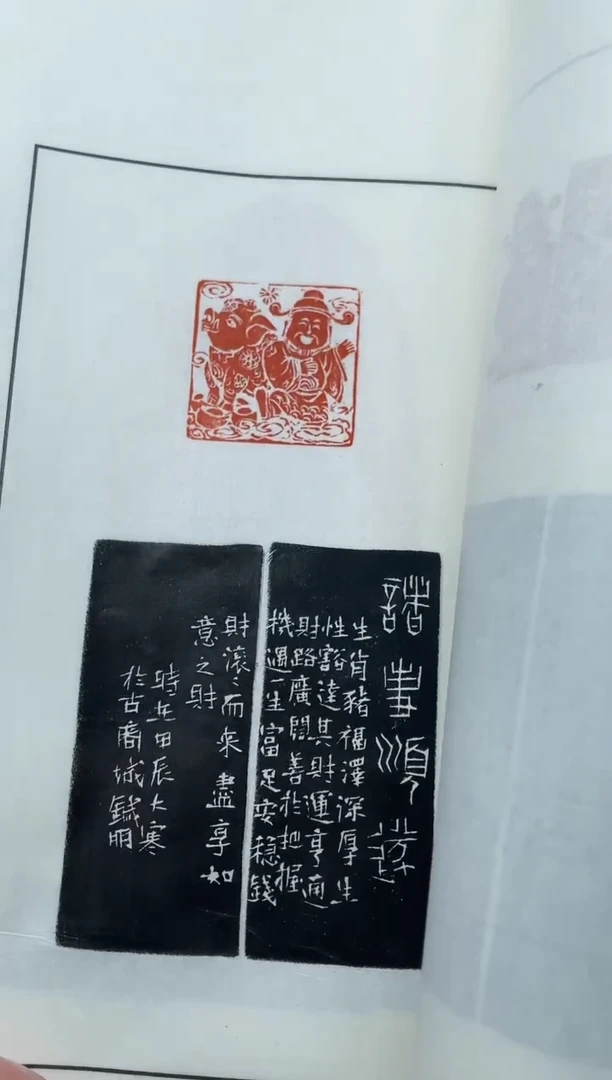 諸事順遂
生肖豬福澤深厚生
性豁達其財運亨通
財路廣闊善於把握
機遇一生富足安穩錢
財滾〻而來盡享如
意之財
時在甲辰大寒
於古商城鉞明